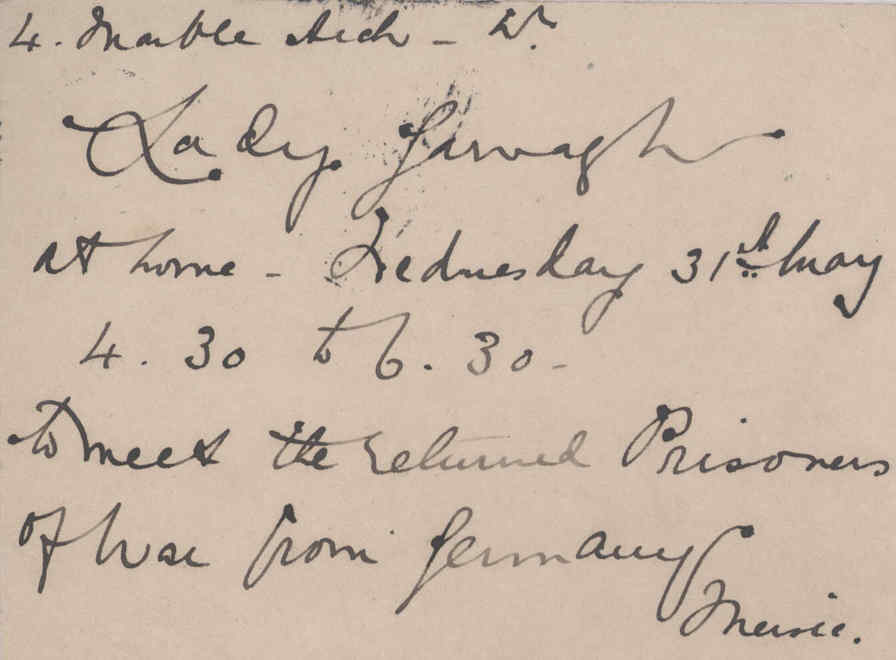 4. Marble Arch - W.
Lady Garvagh
at home - Wednesday 31st May
4. 30 to 6. 30 -
to meet the returned Prisoners
of War from Germany
Music.